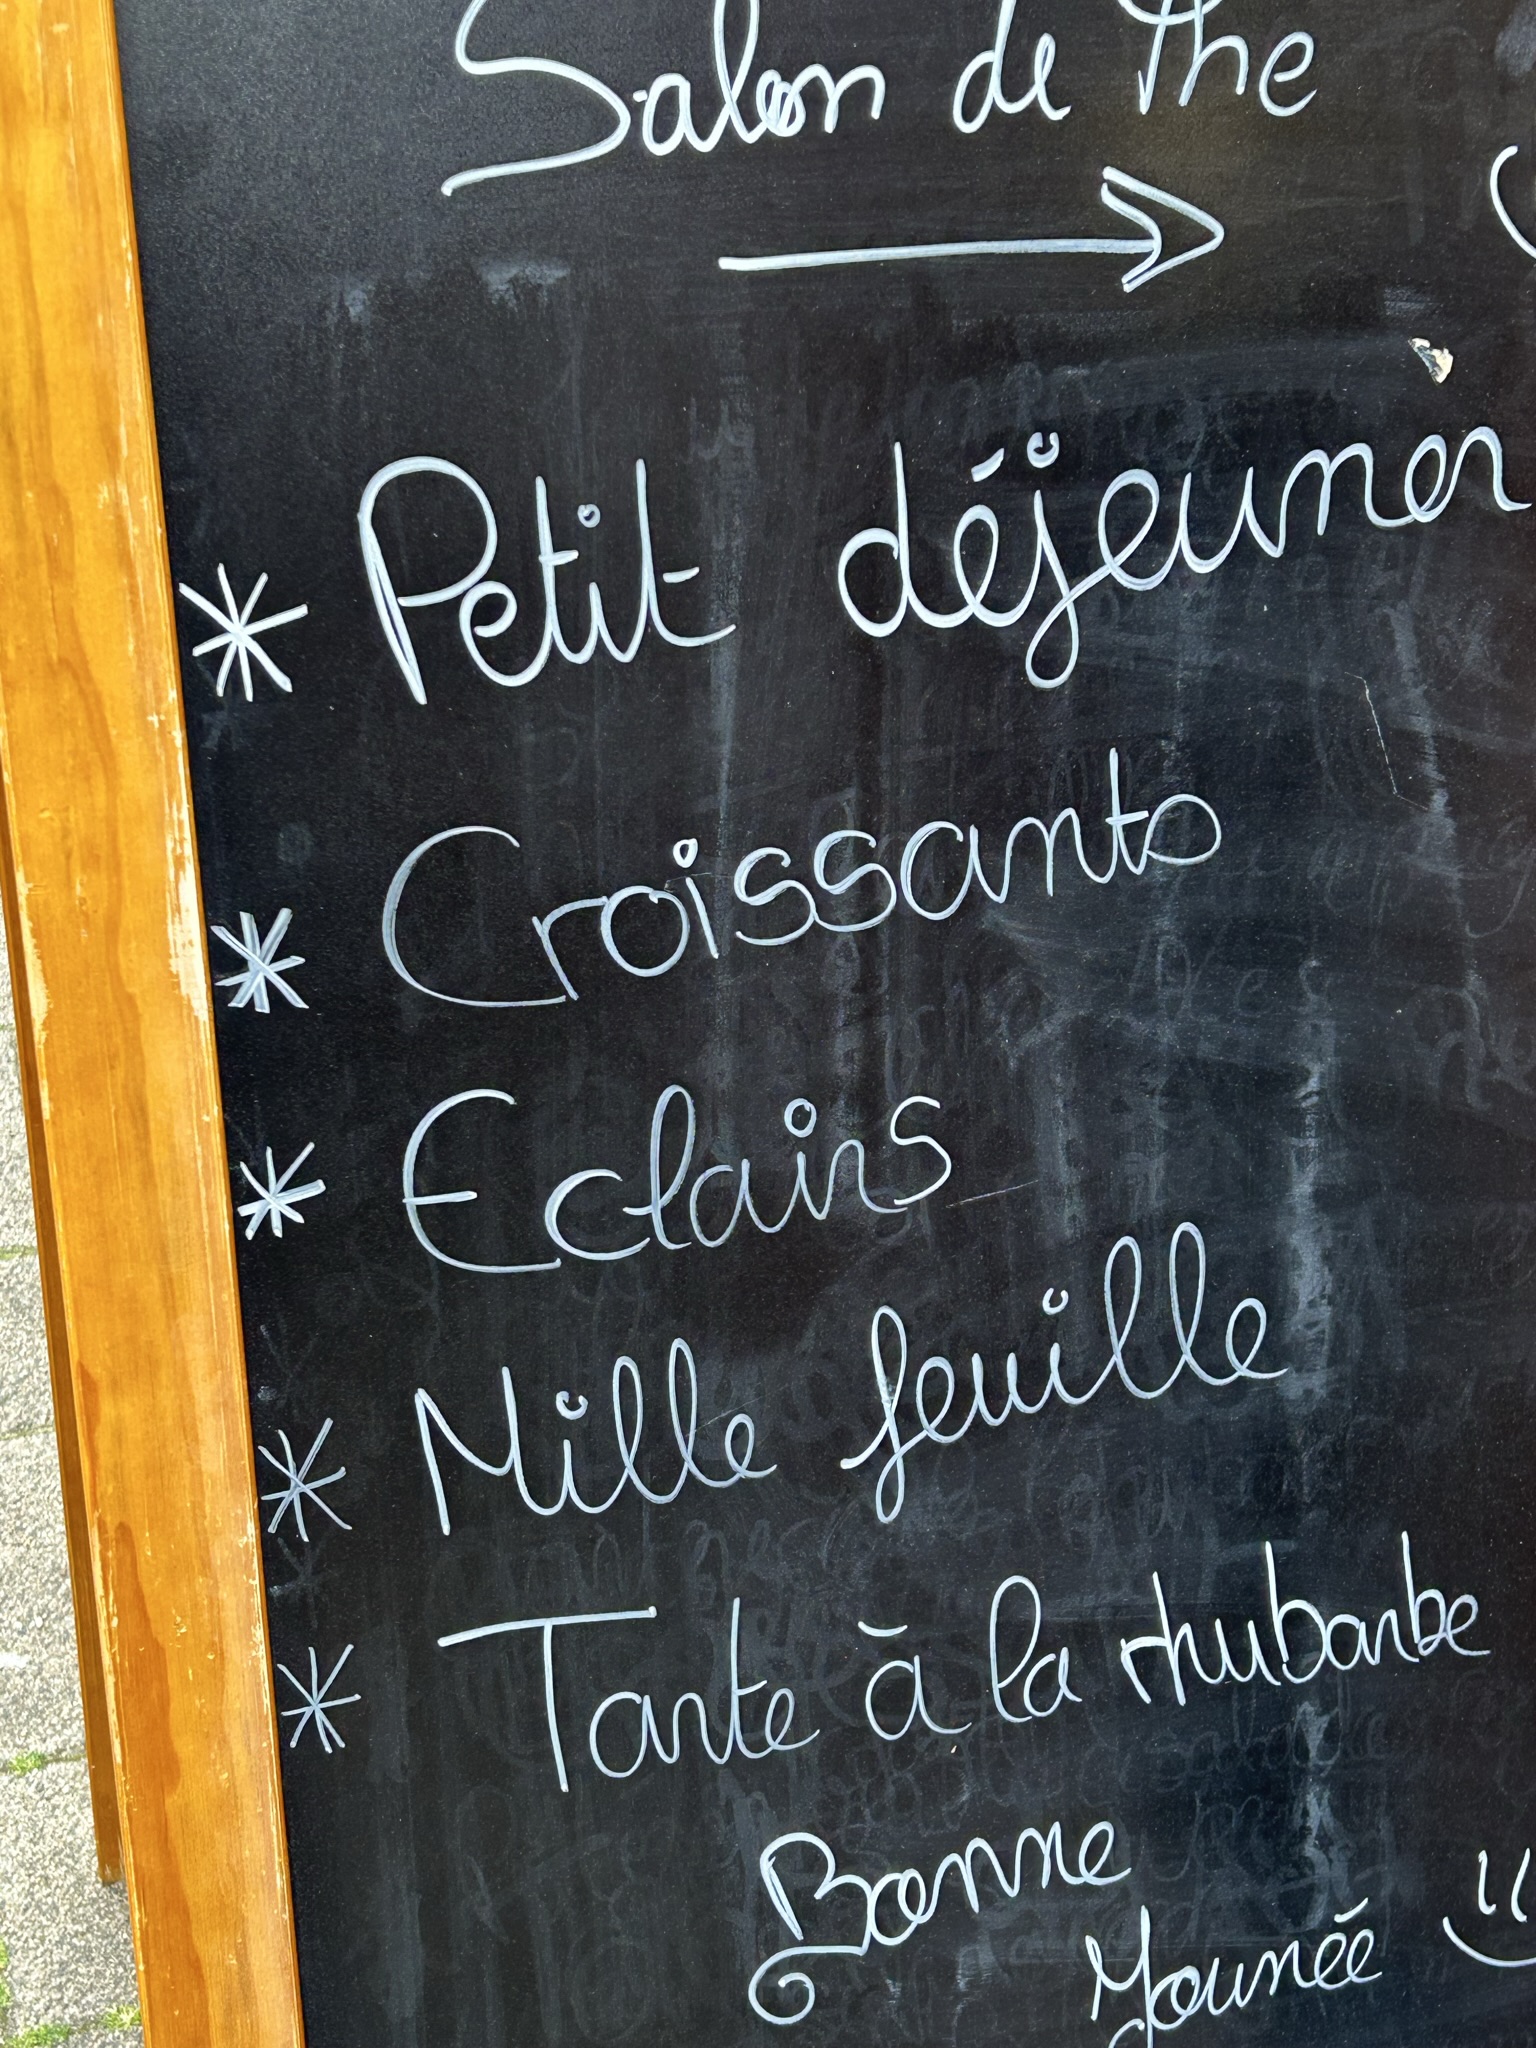 Salon de The
Petit déjeuner
Croissants
Eclairs
Mille feuille
Tarte à la rhubarbe
Bonne
Journée